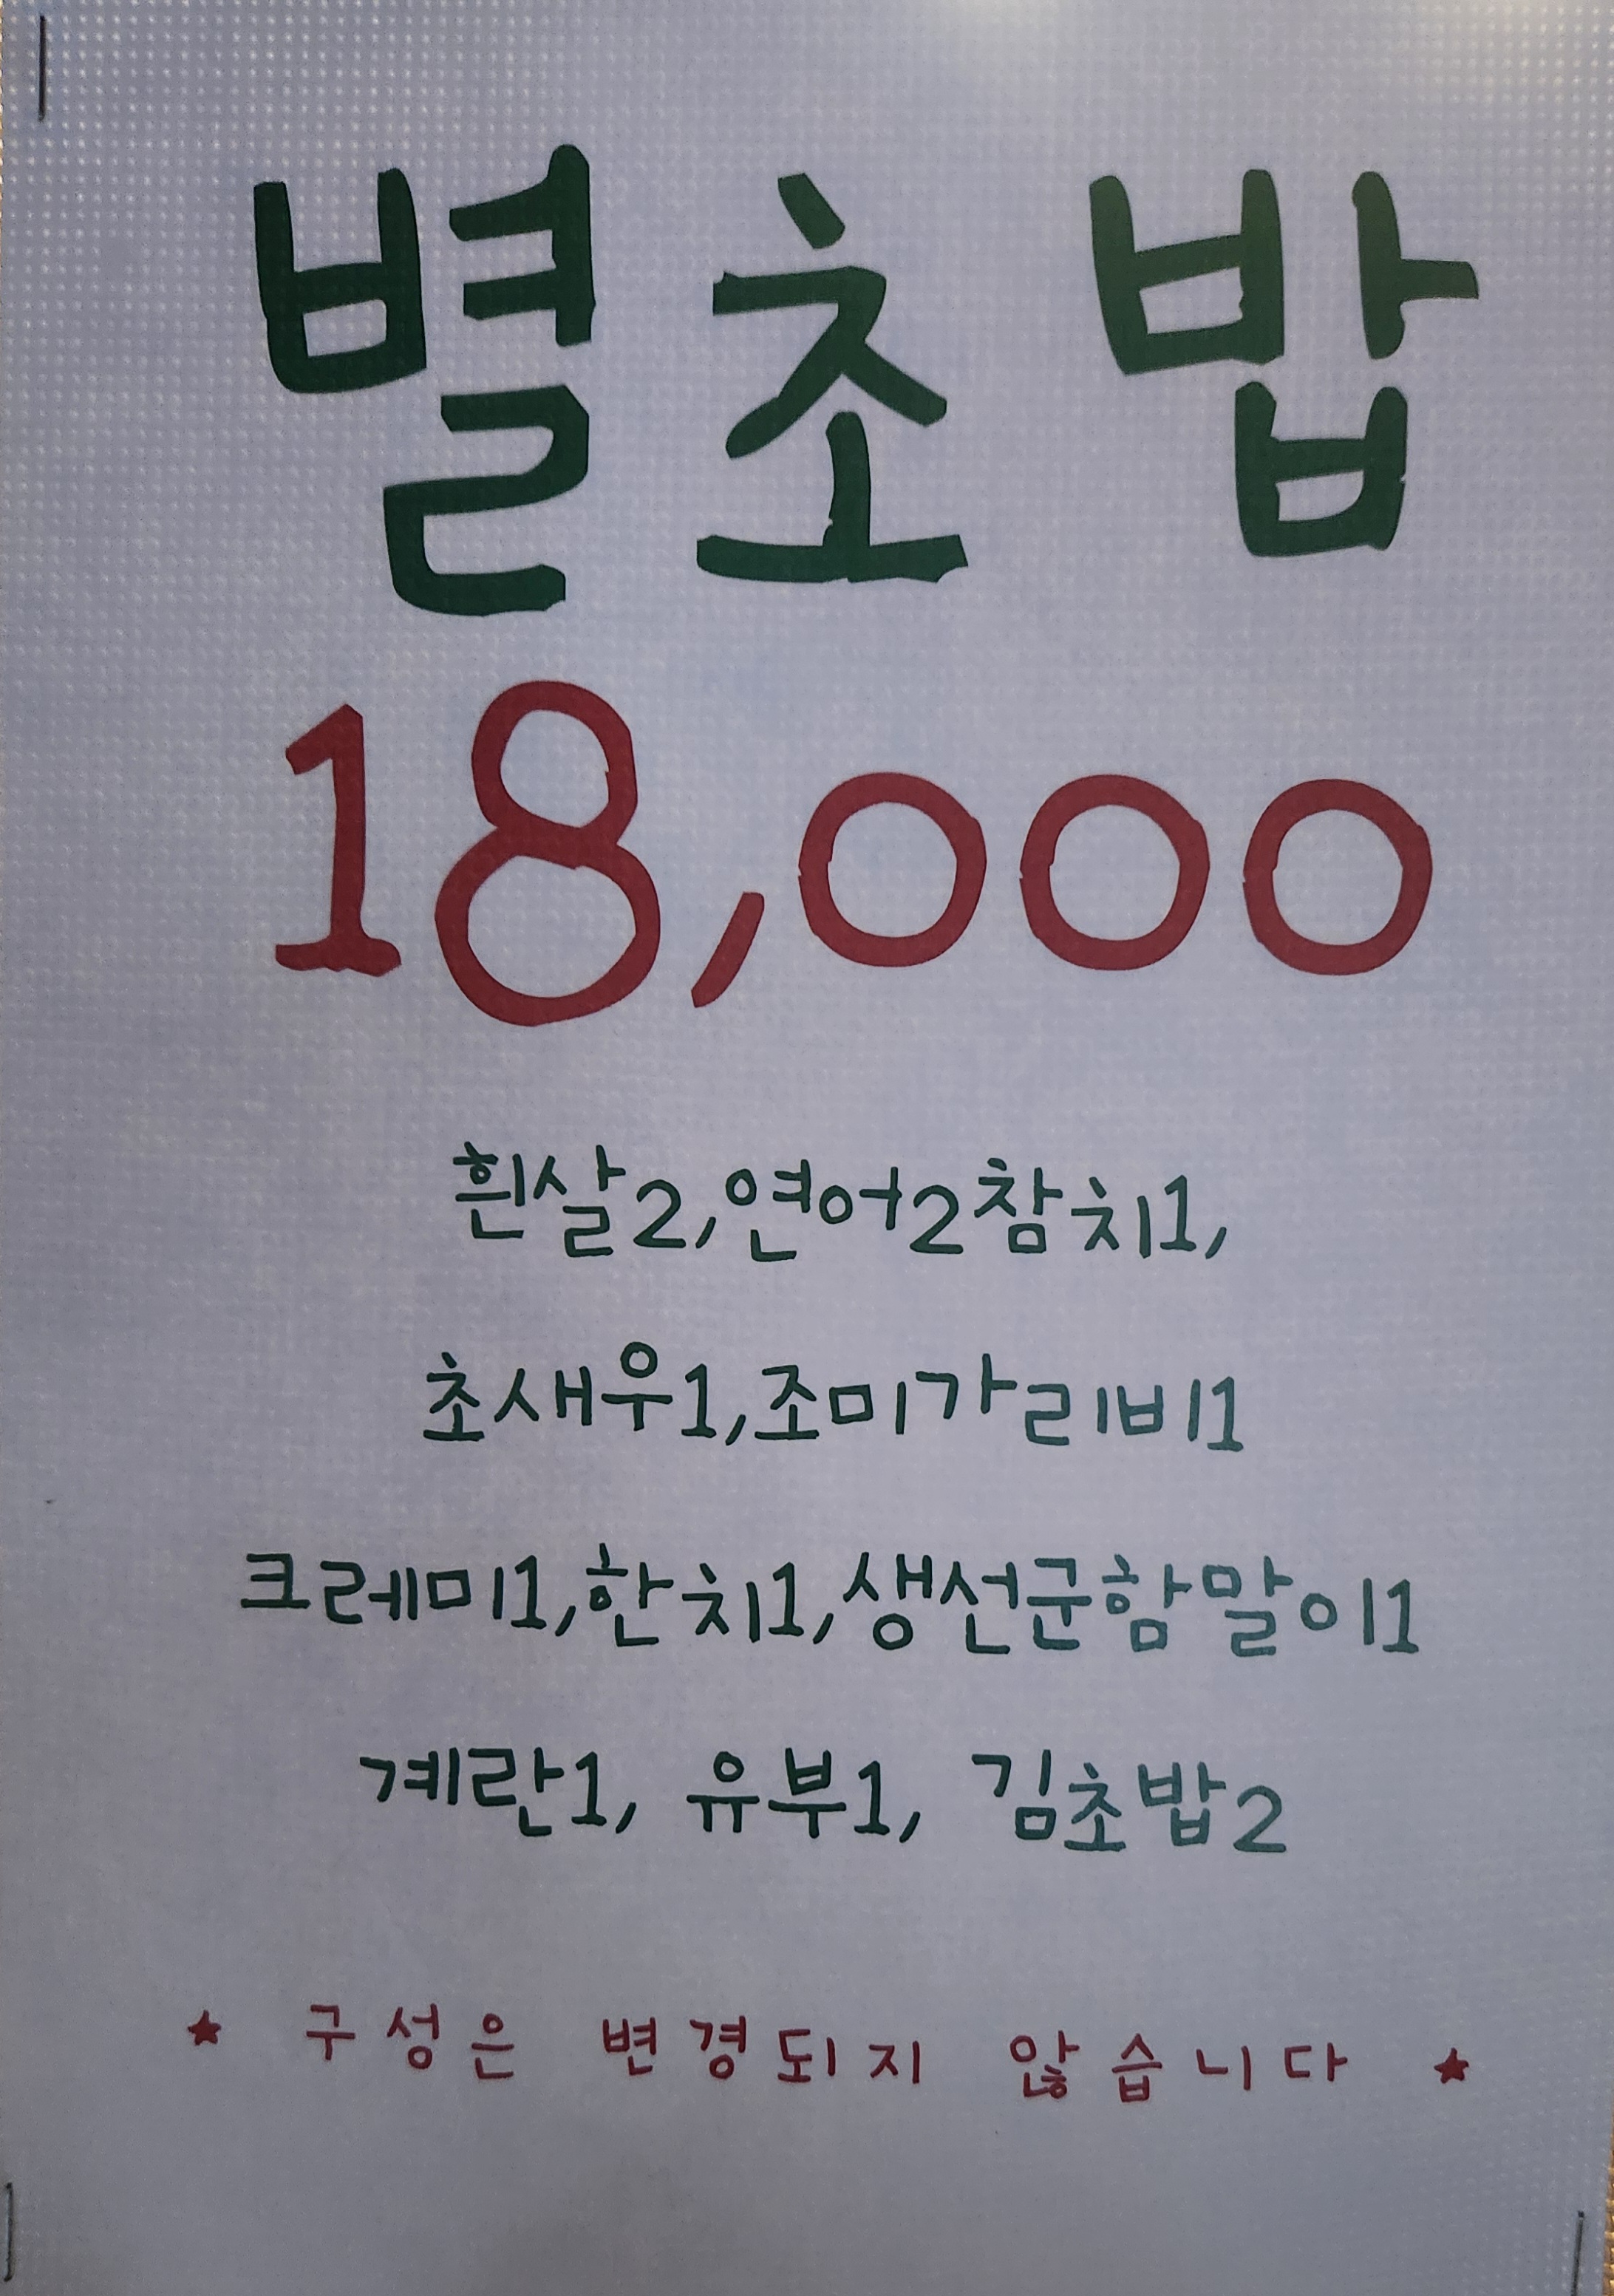 별초밥
18,000
흰살2,연어2참치1,
초새우1,조미가리비1
크레미1,한치1,생선군함말이1
계란1, 유부1, 김초밥2
★ 구성은 변경되지 않습니다 ★